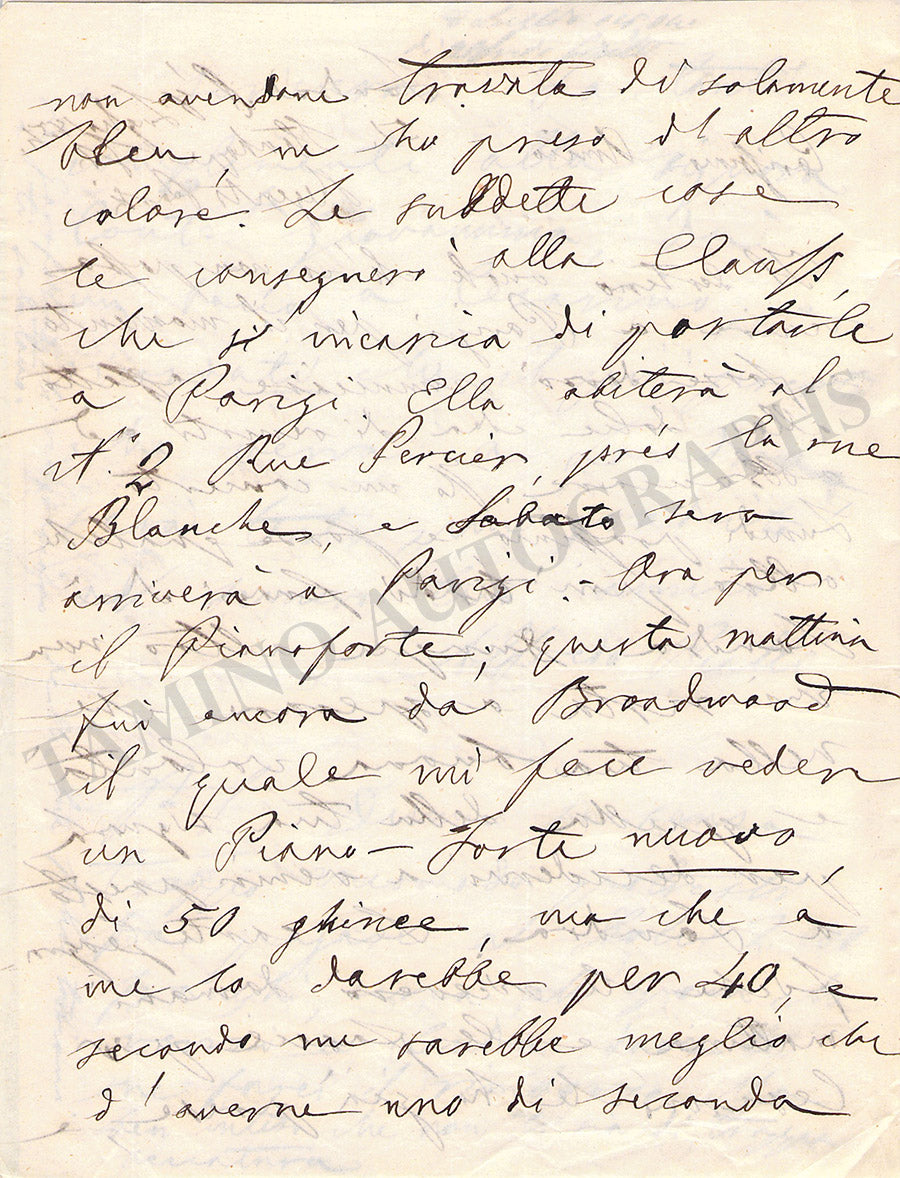 non avendone trovata di solamente
bleu, ne ho preso d'altro
colore. Le suddette cose
le consegnerò alla Clauss,
che si incarica di portarle
a Parigi. Ella abiterà al
N.° 2 Rue Percier, prés la rue
Blanche, e Sabato sera
arriverà a Parigi – Ora per
il Pianoforte; questa mattina
fui ancora da Broadwood
il quale mi fece veder
un Piano–Forte nuovo,
di 50 ghinee, ma che a
me lo darebbe per 40, e
secondo me sarebbe meglio che
d'averne uno di seconda
TAMINO AUTOGRAPHS